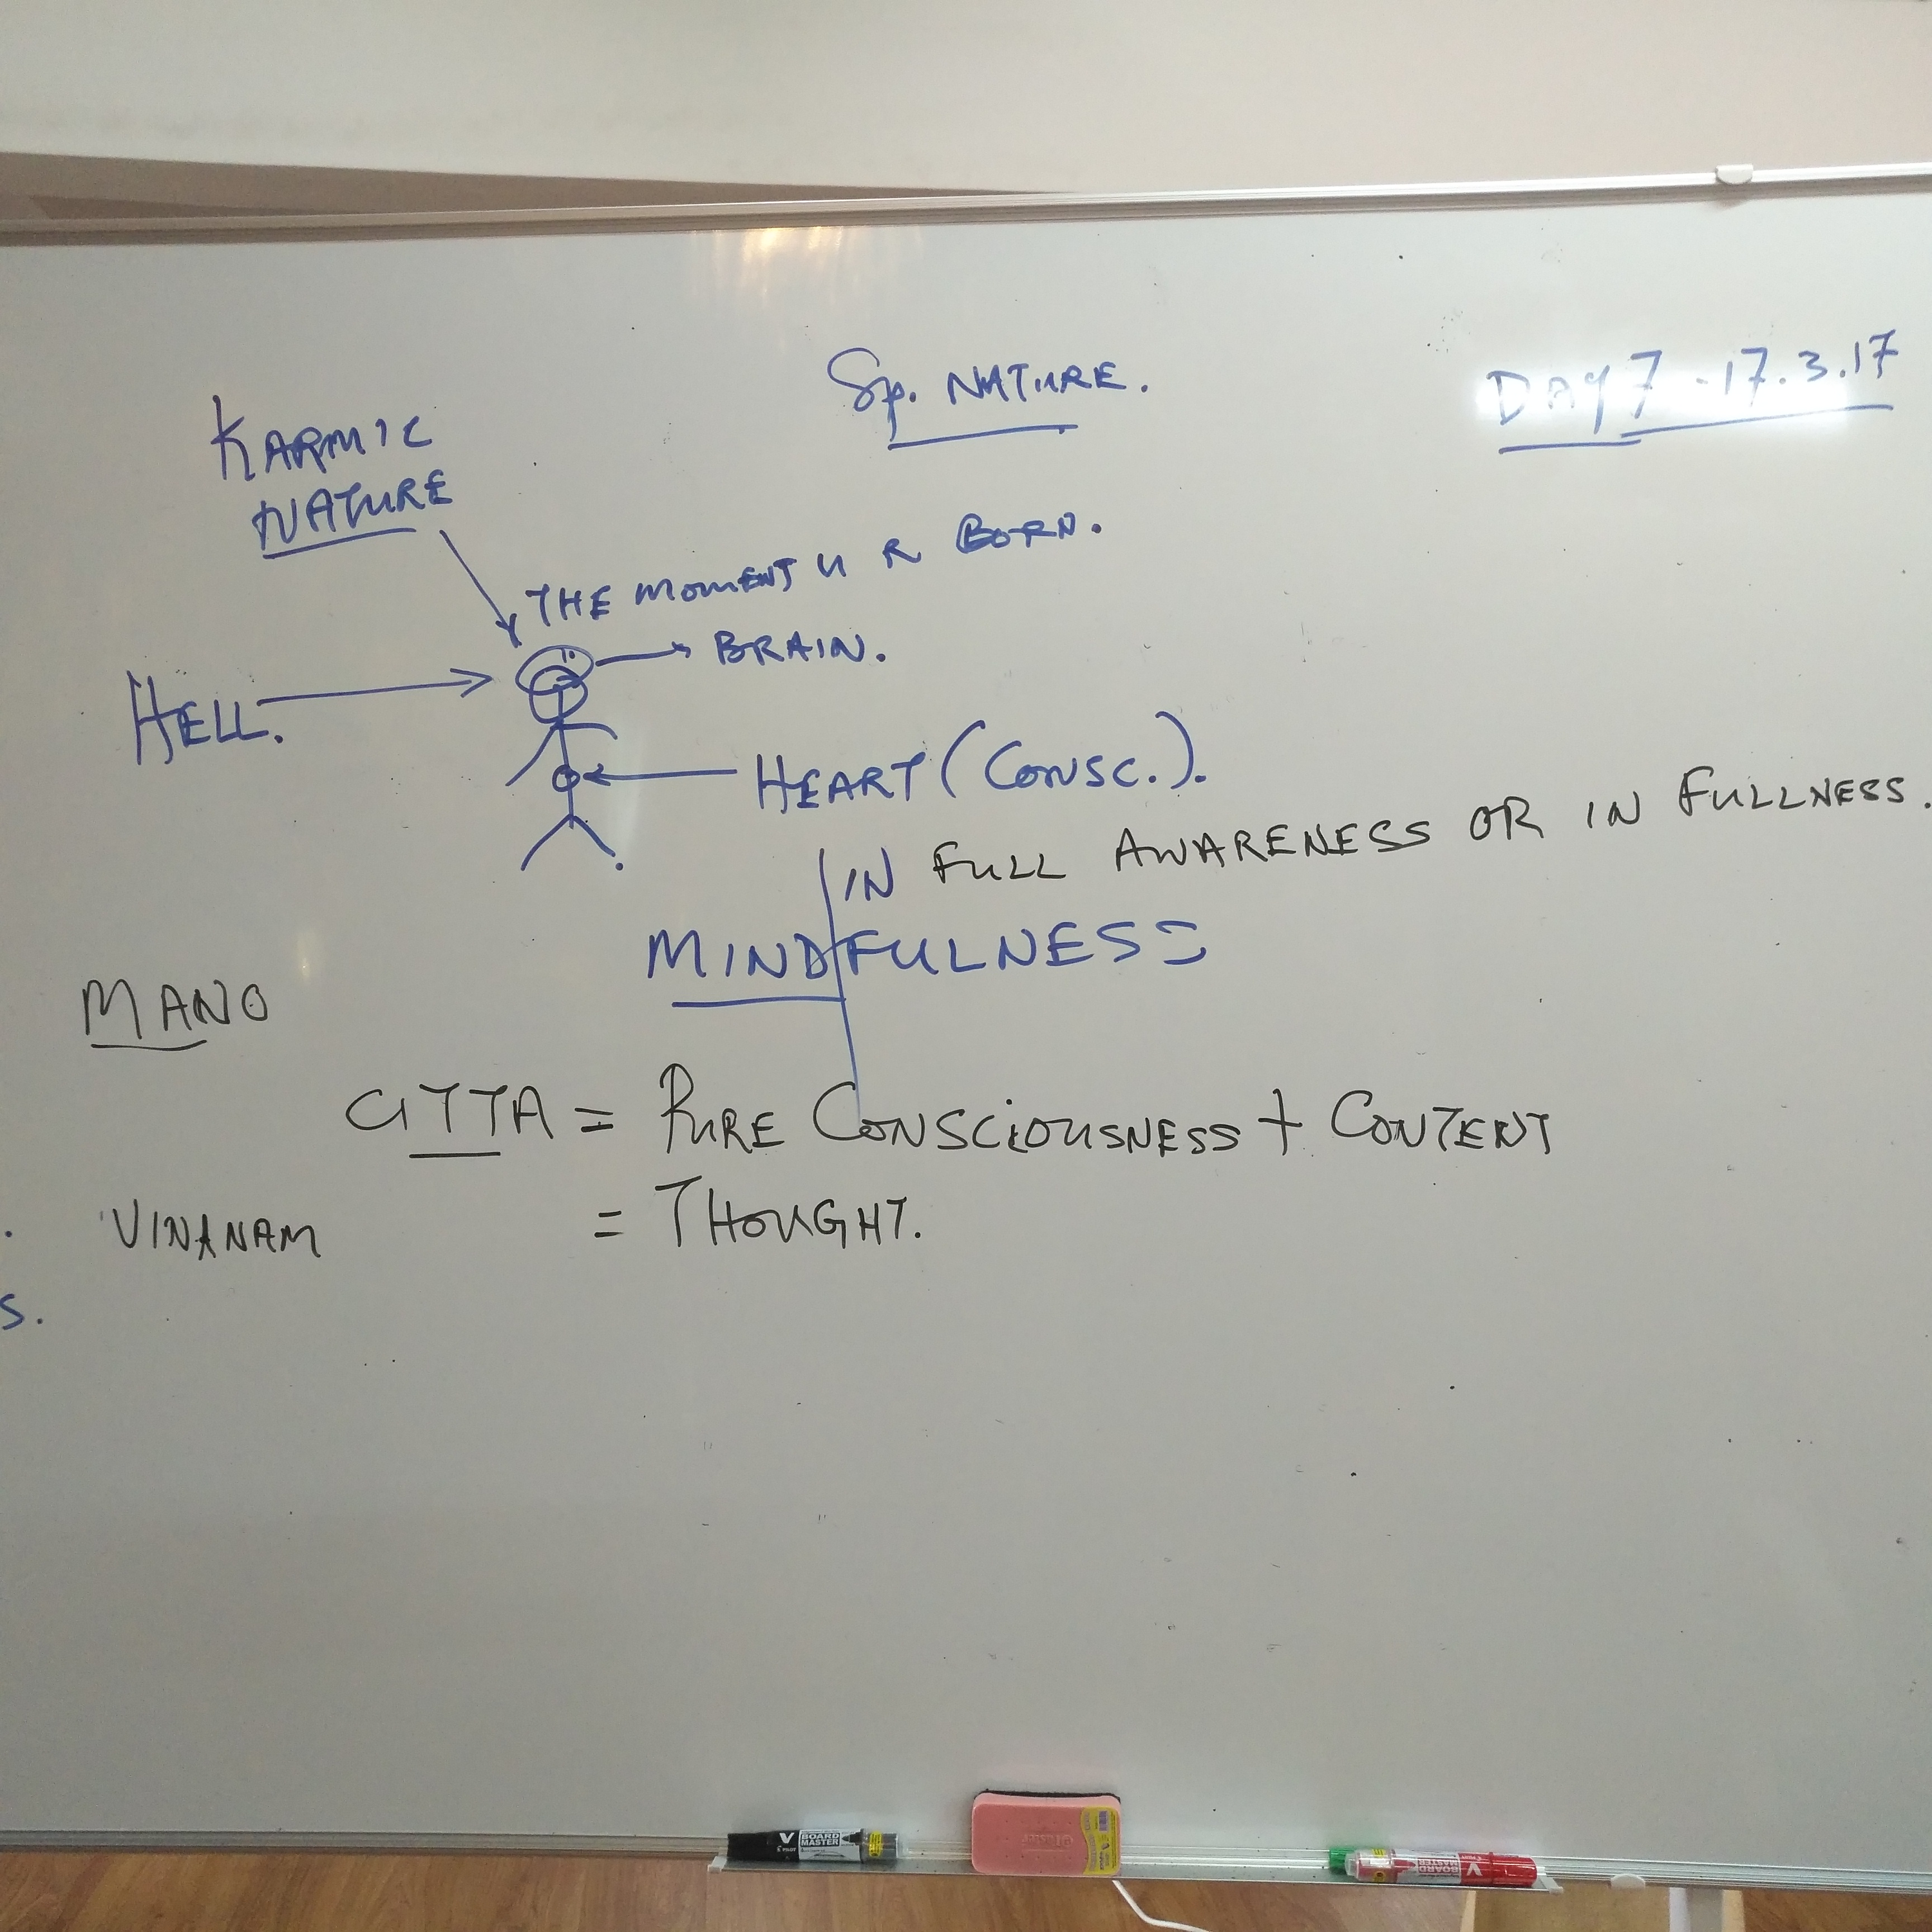 Sp. NATURE.
DAY 7 - 17.3.17
KARMIC
NATURE
THE MOMENT U R BORN.
BRAIN.
HELL.
HEART (CONSC.).
IN FULL AWARENESS OR IN FULLNESS.
MINDFULNESS
MANO
CITTA = PURE CONSCIOUSNESS + CONTENT
VINANAM = THOUGHT.
S.
V BOARD MASTER
PILOT
V BOARD MASTER